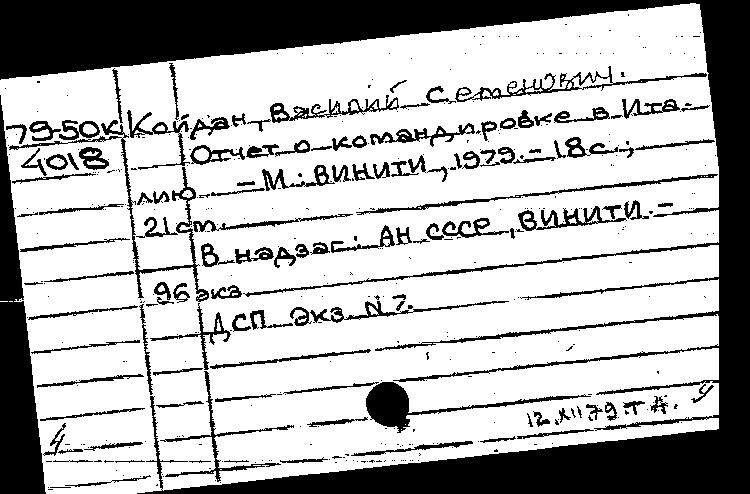 79-50К Койдан, Василий Семенович.
4018 Отчет о командировке в Ита-
лию - М.: ВИНИТИ, 1979. - 18с.;
21 cm.
В надзаг: АН СССР, ВИНИТИ. -
96 экз.
ДСП Экз. N 7.
12.XII.79. Т А. У
4